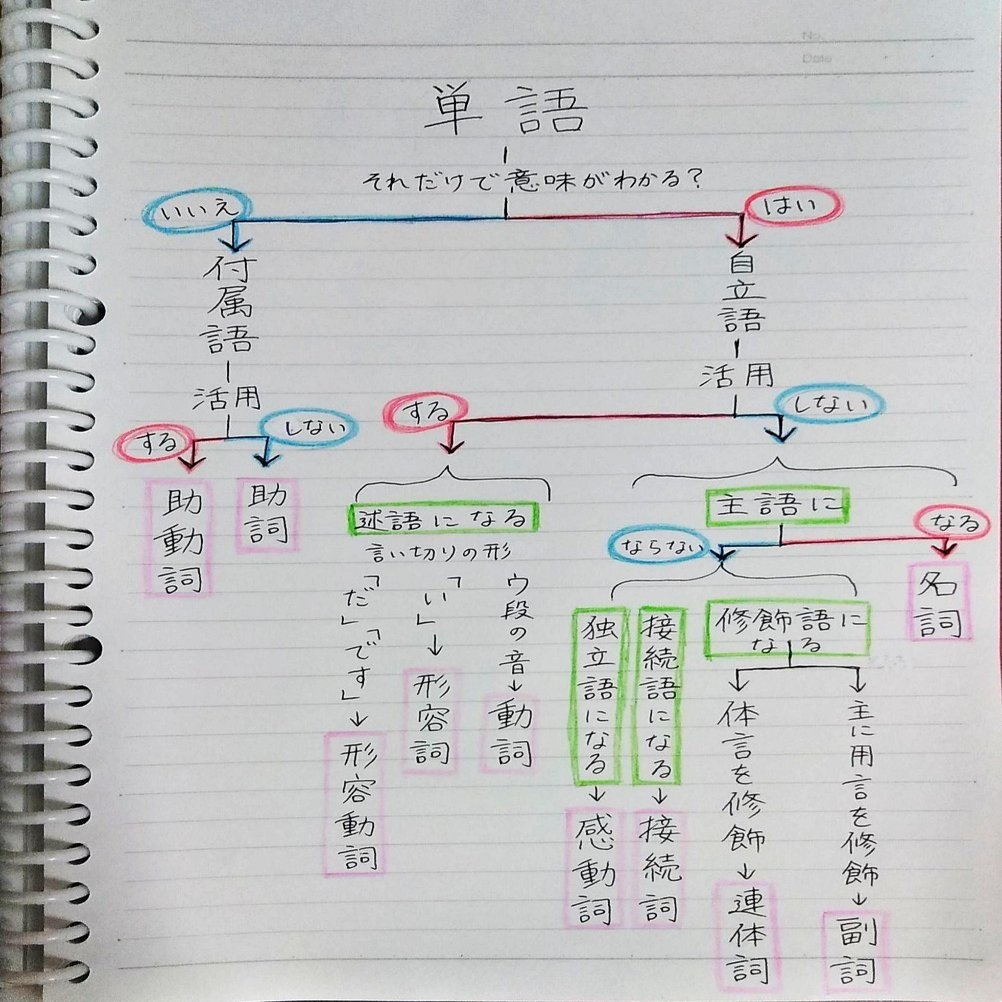 No.
Date
単語
それだけで意味がわかる?
いいえ
はい
付属語
自立語
活用
活用
する
しない
する
しない
助動詞
助詞
述語になる
言い切りの形
ウ段の音→動詞
「い」→形容詞
「だ」「です」→形容動詞
主語に
なる
名詞
ならない
修飾語に
なる
主に用言を修飾→副詞
体言を修飾→連体詞
接続語になる→接続詞
独立語になる→感動詞